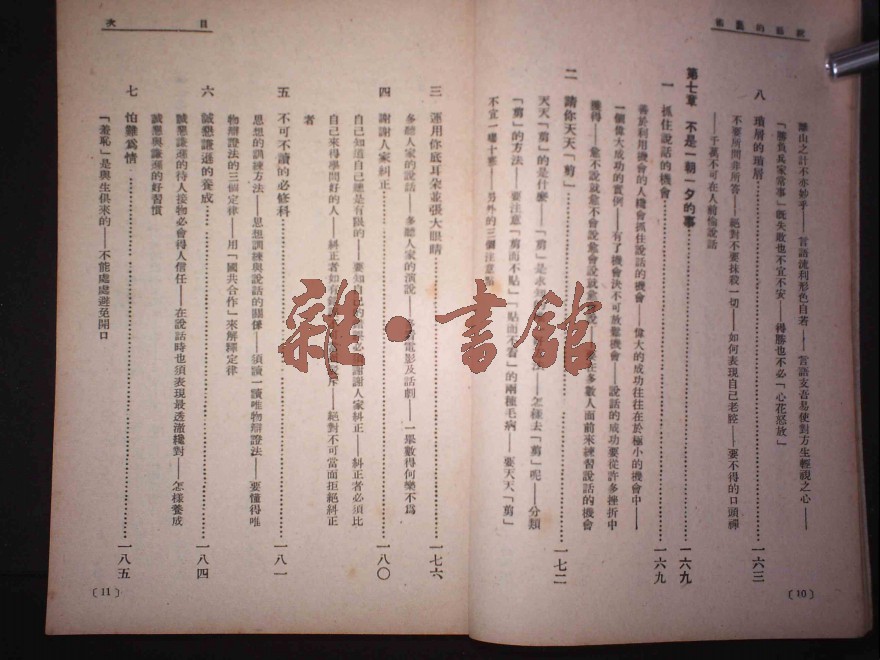 離山之計不亦妙乎——言語流利形色自若——言語支吾易使對方生輕視之心——
「勝負兵家常事」既失敗也不宜不安——得勝也不必「心花怒放」
八 瑣屑的瑣屑 一六三
不要所問非所答——絕對不要抹殺一切——如何表現自己老腔——要不得的口頭禪
——千萬不可在人前悔說話
第七章 不是一朝一夕的事 一六九
一 抓住說話的機會 一六九
善於利用機會的人纔會抓住說話的機會——偉大的成功往往在於極小的機會中——
一個偉大成功的實例——有了機會決不可放鬆機會——說話的成功要從許多挫折中
獲得——愈不說就愈不會說愈會說就愈 說 在多數人面前來練習說話的機會
二 請你天天「剪」 一七二
天天「剪」的是什麼——「剪」是求知 法——怎樣去「剪」呢——分類
「剪」的方法——要注意「剪而不貼」「貼而不看」的兩種毛病——要天天「剪」
不宜一曝十寒——另外的三個注意點
〔10〕
目 次
三 運用你底耳朵並張大眼睛 一七六
多聽人家的說話——多聽人家的演說—— 看電影及話劇——一舉數得何樂不爲
四 謝謝人家糾正 一八〇
自己知道自己總是有限的——要知自己的 必 謝謝人家糾正——糾正者必須比
自己來得學問好的人——糾正者如有錯 斥——絕對不可當面拒絕糾正
者
五 不可不讀的必修科 一八一
思想的訓練方法——思想訓練與說話的關係——須讀一讀唯物辯證法——要懂得唯
物辯證法的三個定律——用「國共合作」來解釋定律
六 誠懇謙遜的養成 一八四
誠懇謙遜的待人接物必會得人信任——在說話時也須表現最透澈纔對——怎樣養成
誠懇與謙遜的好習慣
七 怕難爲情 一八五
「羞恥」是與生俱來的——不能處處避免開口
〔11〕
雜·書館